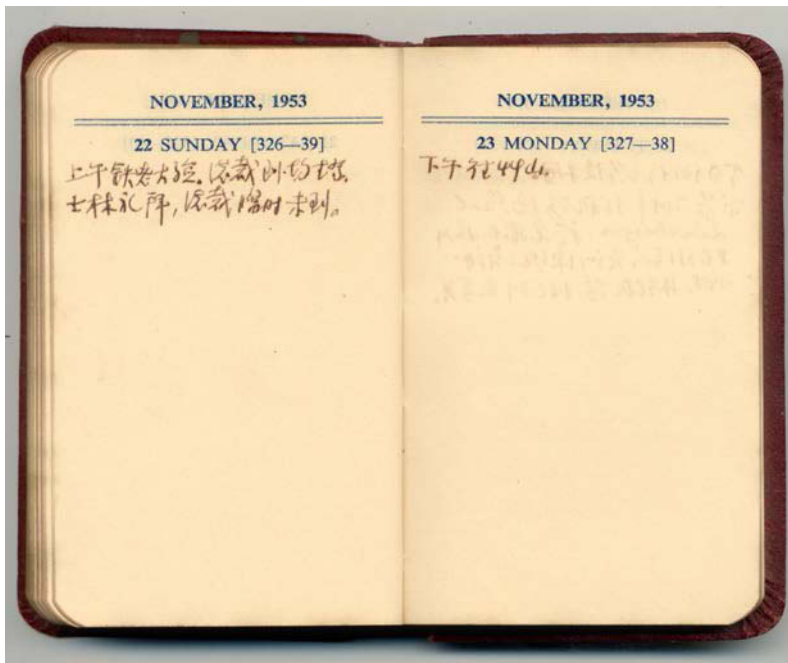 NOVEMBER, 1953
22 SUNDAY [326—39]
上午铁老大殓。总裁到
士林礼拜,总裁临时未到。
NOVEMBER, 1953
23 MONDAY [327—38]
下午